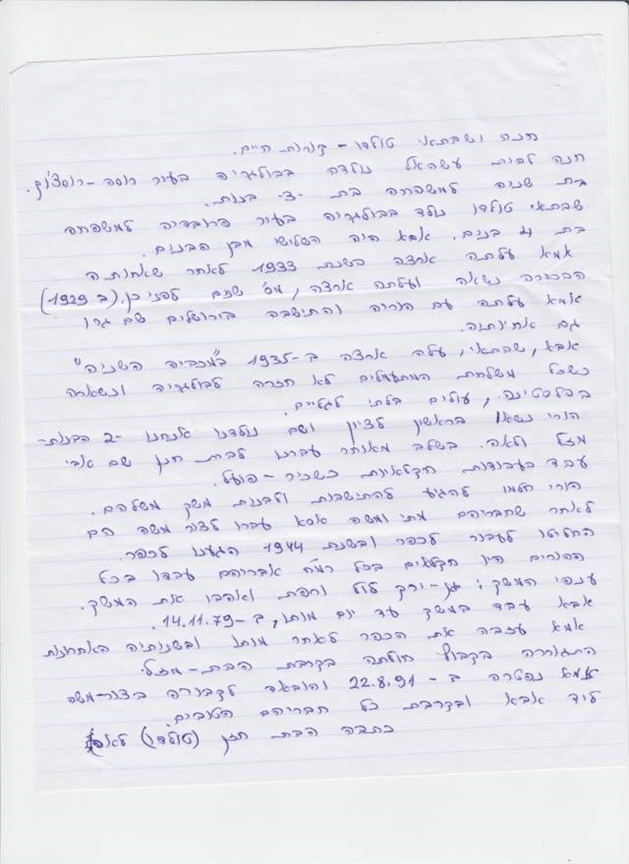 חנה ושבתאי טולדו - קורות חיים.
חנה לבית עשהאל נולדה בבולגריה בעיר רוסה - רוסצ'וק.
בת שניה למשפחה בת -3- בנות.
שבתאי טולדו נולד בבולגריה בעיר פרובדיה למשפחה
בת 4 בנים. אבא היה השלישי מבין הבנים.
אמא עלתה ארצה בשנת 1933 לאחר שאחותה
הבכורה נשאה ועלתה ארצה, מס' שנים לפני כן. (ב 1929)
אמא עלתה עם הוריה והתישבה בירושלים שם גרו
גם אחיותיה.
אבא, שבתאי, עלה ארצה ב-1935 ב"מכביה השניה"
כשכל משלחת המתעמלים לא חזרה לבולגריה ונשארה
בפלסטינה, עולים בלתי לגליים.
הורי נשאו בראשון לציון ושם נולדנו אנחנו -2 הבנות-
מזל ולאה. בשלב מאוחר עברנו לבית חנן שם אבי
עבד בעבודות חקלאיות כשכיר - פועל.
הורי חלמו להגיע להתישבות ולבנות משק משלהם.
לאחר שחבריהם מתי ומשה אסא עברו לצור משה הם
החליטו לעבור לכפר ובשנת 1944 הגענו לכפר.
ההורים היו חקלאים בכל רמ"ח אבריהם עבדו בכל
ענפי המשק: גן-ירק לול ורפת ואהבו את המשק.
אבא עבד במשק עד יום מותו, ב-14.11.79.
אמא עזבה את הכפר לאחר מותו ובשנותיה האחרונות
התגוררה בקבוץ חולתה בקרבת הבת - מזל.
אמא נפטרה ב- 22.8.91 והובאה לקבורה בצור-משה
ליד אבא ובקרבת כל חבריהם הטובים.
כתבה הבת חזן (טולדו) לאה